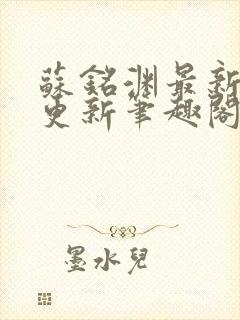 蘇銘淵最新
更新筆趣閣
墨水兒